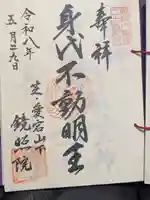 奉拝
身代不動明王
芝・愛宕山下
鏡照院
令和八年
五月二九日